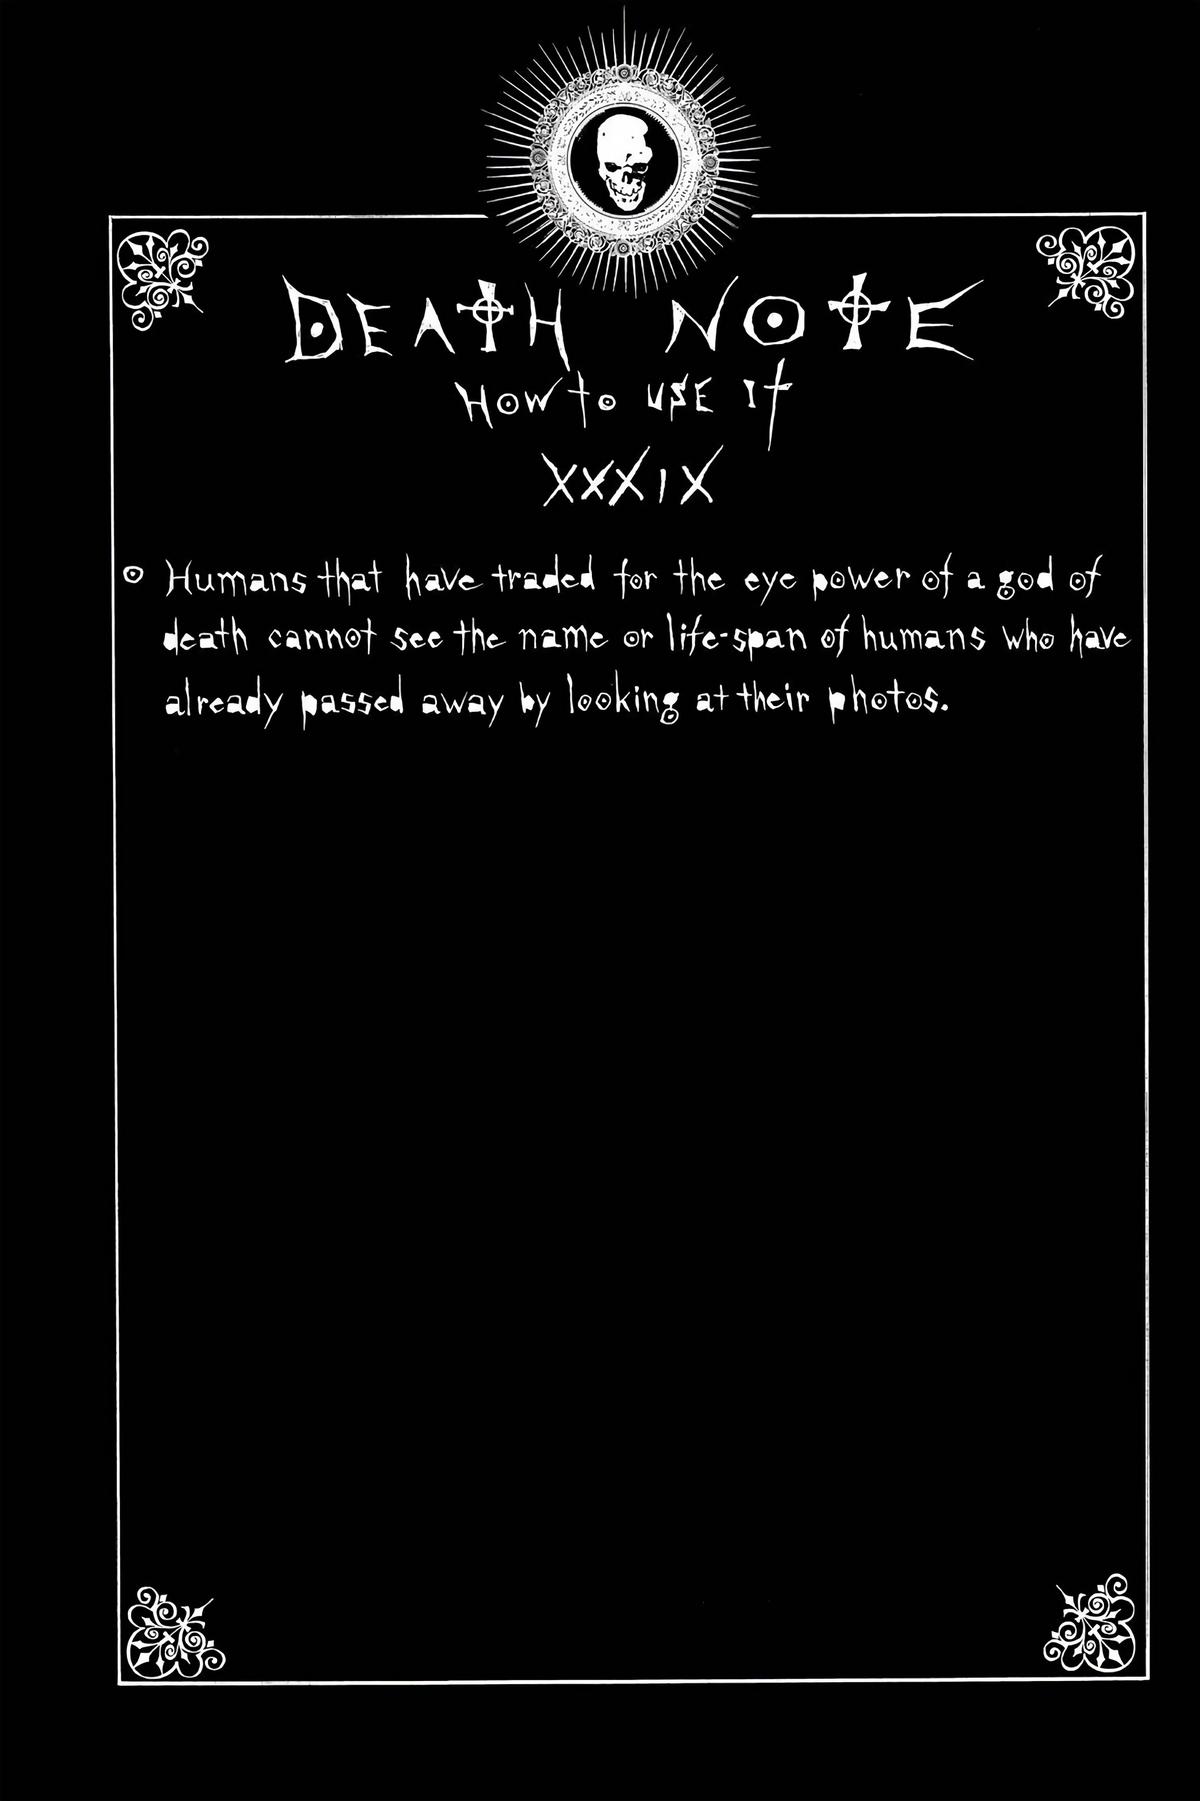 DEATH NOTE
HOW to USE It
XXXIX
Humans that have traded for the eye power of a god of
death cannot see the name or life-span of humans who have
already passed away by looking at their photos.